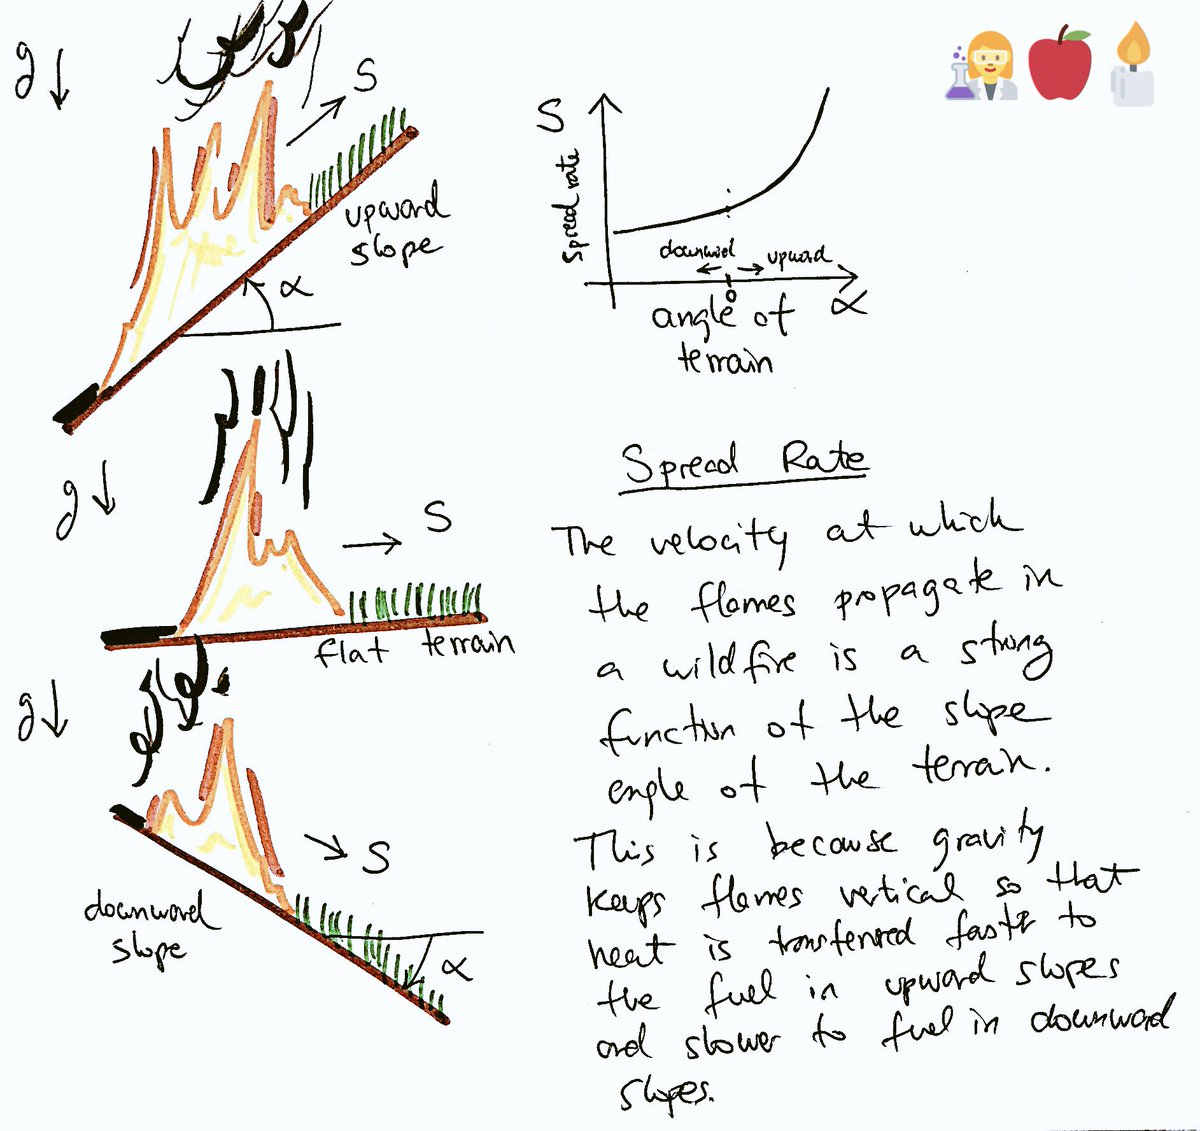 g
S
upward
slope
α
g
S
flat terrain
g
S
downward
slope
α
S
Spread rate
downward
upward
0
α
angle of
terrain
Spread Rate
The velocity at which
the flames propagate in
a wildfire is a strong
function of the slope
angle of the terrain.
This is because gravity
keeps flames vertical so that
heat is transferred faster to
the fuel in upward slopes
and slower to fuel in downward
slopes.